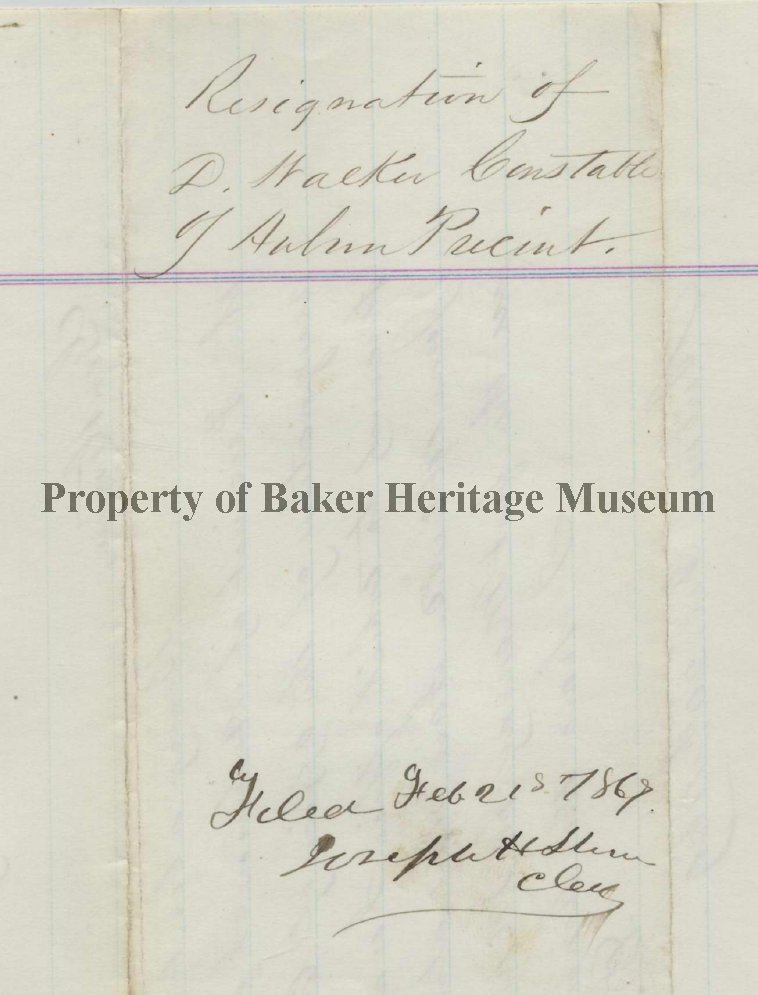 Resignation of
D. Walker Constable
of Auburn Precint.
Property of Baker Heritage Museum
Filed Feb 21s 1869
Joseph H
Clerk